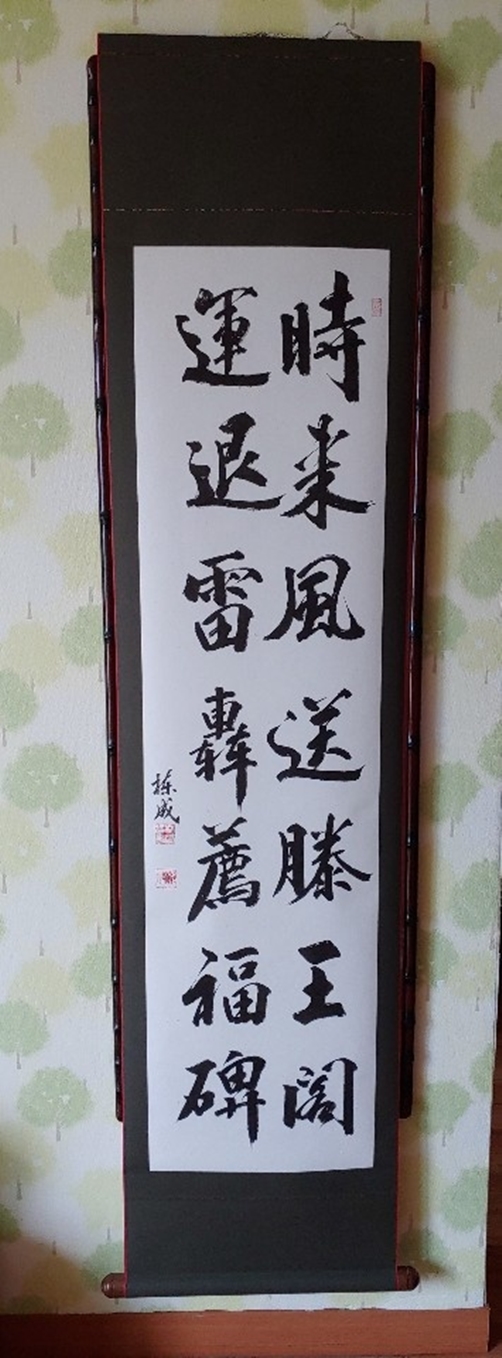 時来風送滕王阁
運退雷轟薦福碑
栋成